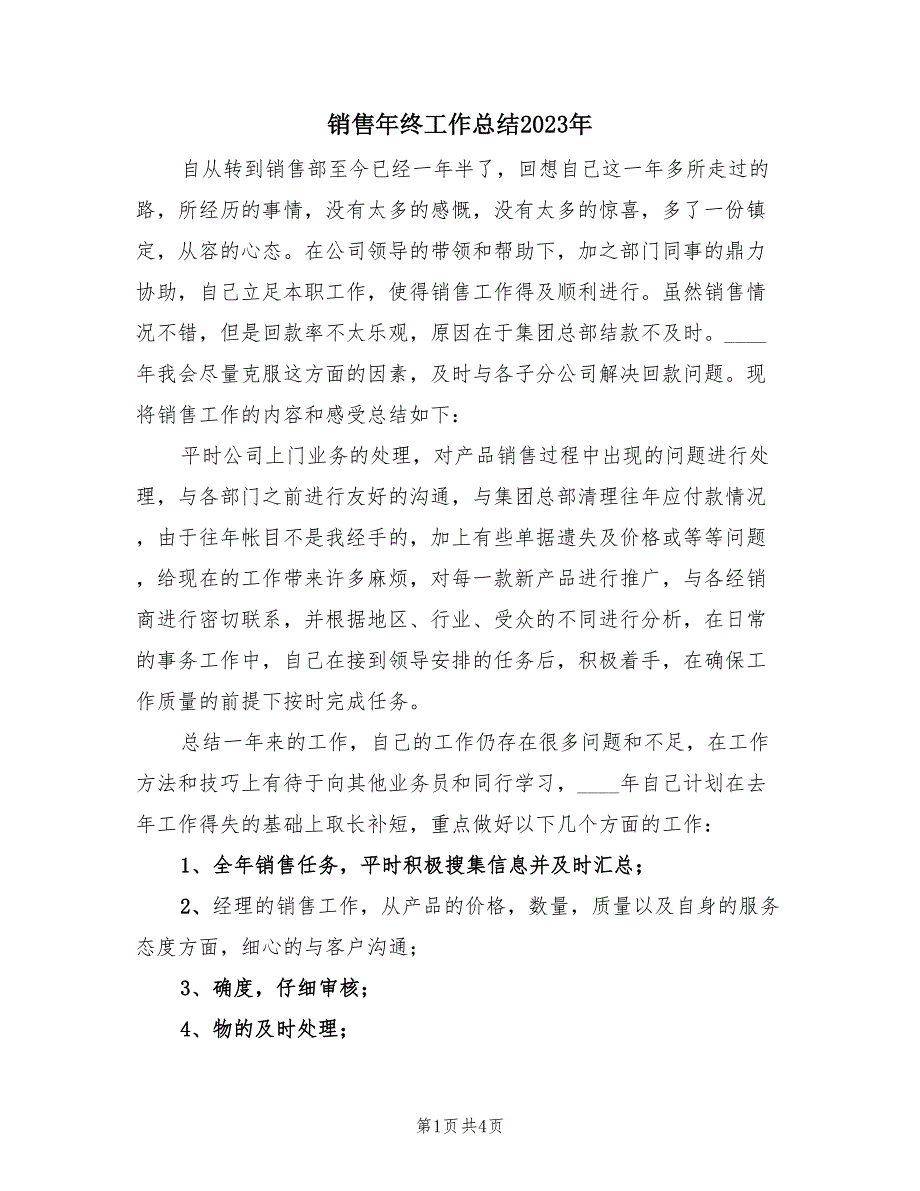 销售年终工作总结2023年
自从转到销售部至今已经一年半了，回想自己这一年多所走过的
路，所经历的事情，没有太多的感慨，没有太多的惊喜，多了一份镇
定，从容的心态。在公司领导的带领和帮助下，加之部门同事的鼎力
协助，自己立足本职工作，使得销售工作得及顺利进行。虽然销售情
况不错，但是回款率不太乐观，原因在于集团总部结款不及时。____
年我会尽量克服这方面的因素，及时与各子分公司解决回款问题。现
将销售工作的内容和感受总结如下：
平时公司上门业务的处理，对产品销售过程中出现的问题进行处
理，与各部门之前进行友好的沟通，与集团总部清理往年应付款情况
，由于往年帐目不是我经手的，加上有些单据遗失及价格或等等问题
，给现在的工作带来许多麻烦，对每一款新产品进行推广，与各经销
商进行密切联系，并根据地区、行业、受众的不同进行分析，在日常
的事务工作中，自己在接到领导安排的任务后，积极着手，在确保工
作质量的前提下按时完成任务。
总结一年来的工作，自己的工作仍存在很多问题和不足，在工作
方法和技巧上有待于向其他业务员和同行学习，____年自己计划在去
年工作得失的基础上取长补短，重点做好以下几个方面的工作：
1、全年销售任务，平时积极搜集信息并及时汇总；
2、经理的销售工作，从产品的价格，数量，质量以及自身的服务
态度方面，细心的与客户沟通；
3、确度，仔细审核；
4、物的及时处理；
第1页共4页